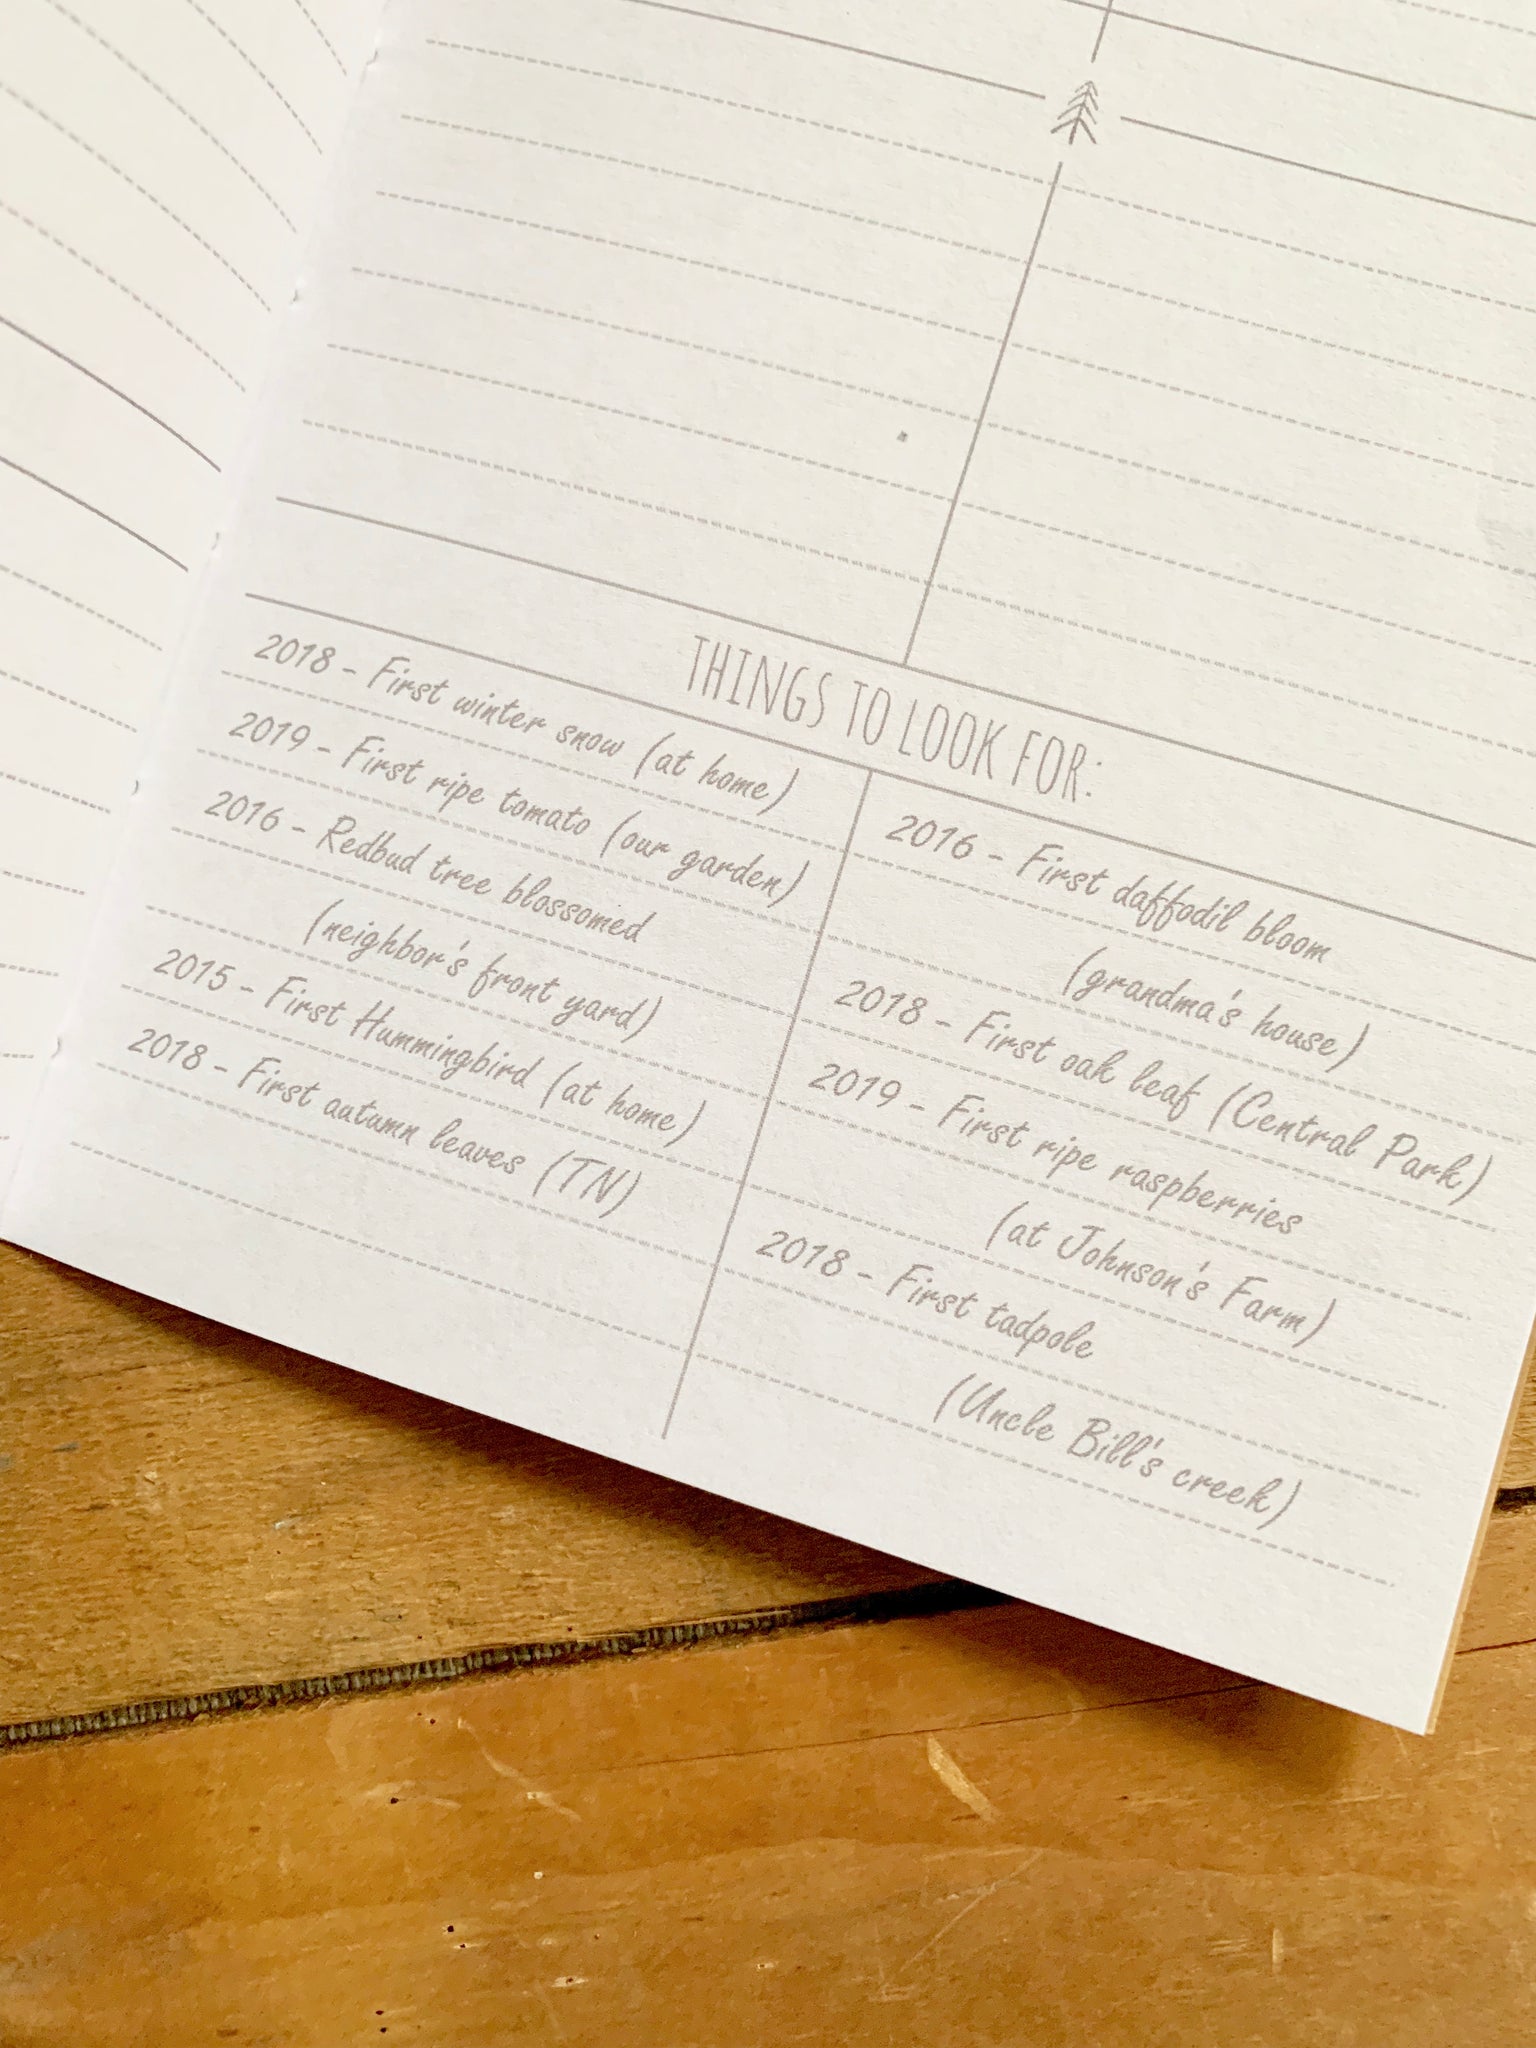 THINGS TO LOOK FOR:
2018 - First winter snow (at home)
2019 - First ripe tomato (our garden)
2016 - Redbud tree blossomed
(neighbor's front yard)
2015 - First Hummingbird (at home)
2018 - First autumn leaves (TN)
2016 - First daffodil bloom
(grandma's house)
2018 - First oak leaf (Central Park)
2019 - First ripe raspberries
(at Johnson's Farm)
2018 - First tadpole
(Uncle Bill's creek)